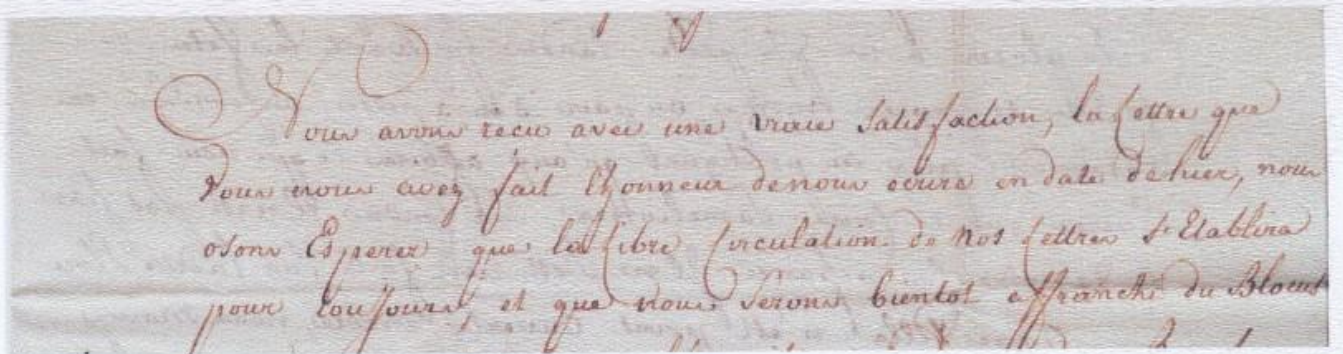 Nous avons recu avec une vraie Satisfaction, la Lettre que
Vous nous avez fait l'honneur de nous ecrire en date de hier, nous
osons Esperer que la Libre Circulation de Nos Lettres s'Etablira
pour toujours, et que nous Serons bientot affranchi du Blocus